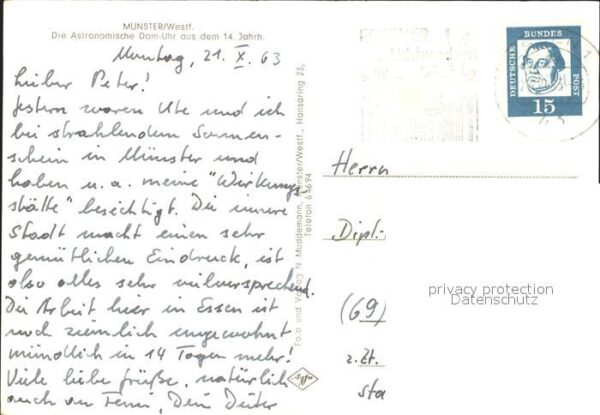 MÜNSTER/Westf.
Die Astronomische Dom-Uhr aus dem 14. Jahrh.
Montag, 21. X. 63
Lieber Peter!
Gestern waren Ute und ich
bei strahlendem Sonnen-
schein in Münster und
haben u. a. meine "Wirkungs-
stätte" besichtigt. Die innere
Stadt macht einen sehr
gemütlichen Eindruck, ist
also alles sehr vielversprechend.
Die Arbeit hier in Essen ist
noch ziemlich ungewohnt
mündlich in 14 Tagen mehr!
Viele liebe Grüße, natürlich
auch an Femi, Dein Dieter
Foto und Verlag N. Muddemann, Münster/Westf., Hansaring 23,
Telefon 64694
Agfa
DEUTSCHE
BUNDES
POST
15
Herrn
Dipl.-
(69)
z. Zt.
Sta
privacy protection
Datenschutz